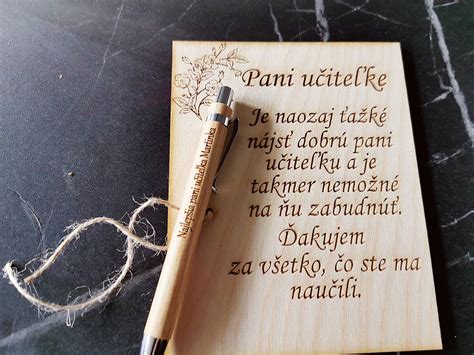 Pani učiteľke
Je naozaj ťažké
nájsť dobrú pani
učiteľku a je
takmer nemožné
na ňu zabudnúť.
Ďakujem
za všetko, čo ste ma
naučili.
Najlepšia pani učiteľka Martinka